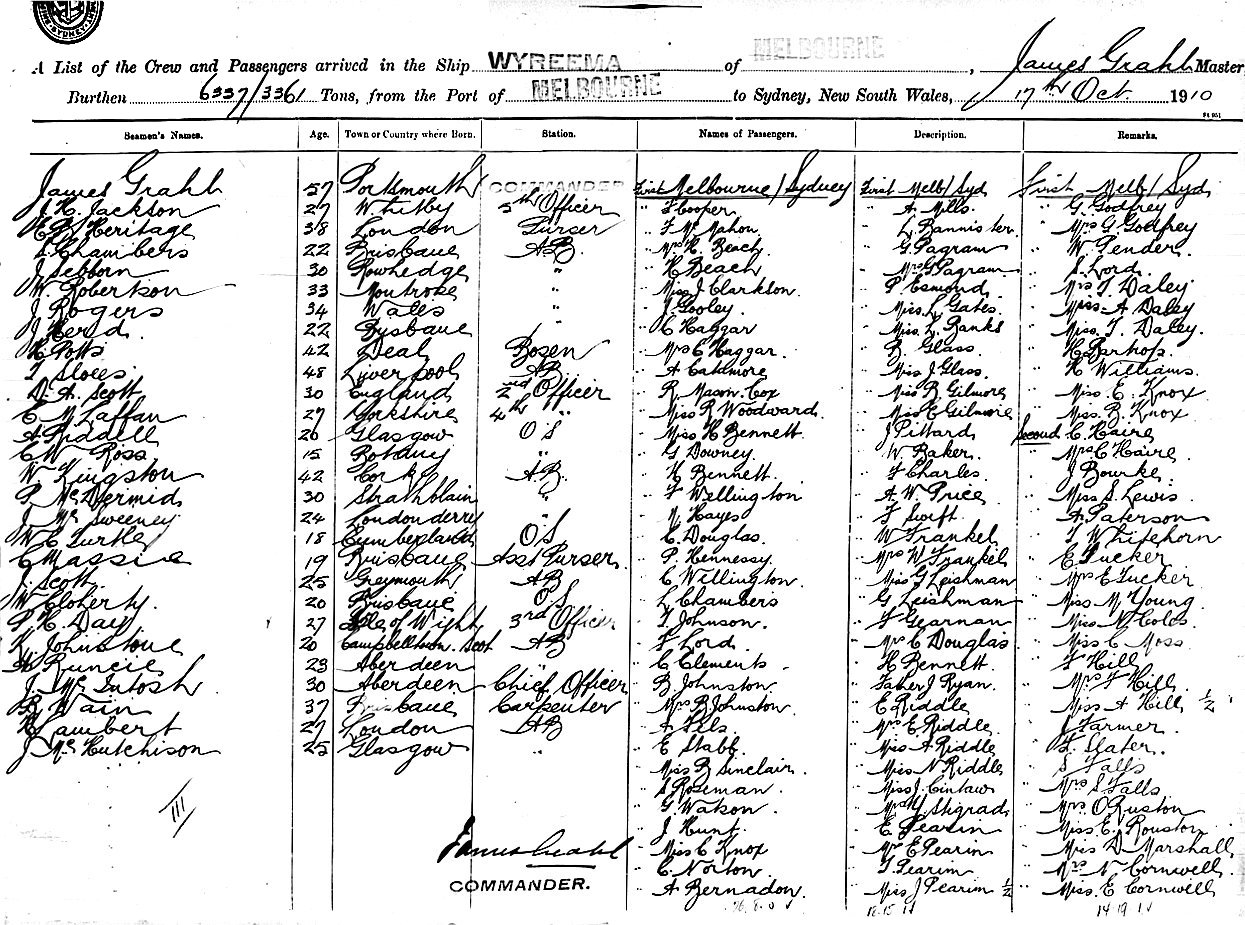 SYDNEY
A List of the Crew and Passengers arrived in the Ship WYREEMA of MELBOURNE, James Grahl Master
Burthen 6337/3361 Tons, from the Port of MELBOURNE to Sydney, New South Wales, 17th Oct. 1910
Seamen's Names. Age. Town or Country where Born. Station. Names of Passengers. Description. Remarks.
James Grahl 57 Portsmouth COMMANDER First Melbourne/Sydney First Melb/Syd First Melb/Syd
H. Jackson 27 Whitby 5th Officer " F Cooper " A. Mills " G. Godfrey
Heritage 38 London Purser " F McMahon " L Bannister " Mrs G. Godfrey
Chambers 22 Brisbane A.B. " Mrs H. Beach " G Pagram " W Pender
J Sebborn 30 Rowhedge " " H Beach " Mrs G Pagram " S. Lord
W. Robertson 33 Montrose " " Miss J Clarkson " P Esmond " Mrs T. Daley
J Rogers 34 Wales " " J Gooley " Miss L. Gates " Miss A Daley
J Herd 22 Brisbane " " C Haggar " Miss L. Banks " Miss T. Daley
H Potts 42 Deal Bosen " Mrs C Haggar " R Glass " H Barhop
T Sloces 48 Liverpool AB " A Cattmore " Miss J Glass " H Williams
D. A. Scott 30 England 2nd Officer " R. Mason-Cox " Miss R. Gilmore " Miss E Knox
C M Laffan 27 Yorkshire 4th " " Miss R Woodward " Miss E Gilmore " Miss B. Knox
A Riddell 20 Glasgow OS " Miss H Bennett " J Pittard Second C. Haire
C W Ross 15 Botany " " G Downey " W Baker " Mrs C Haire
W Kingston 42 Cork A.B. " H Bennett " F Charles " J Bourke
P McDermid 30 Strathblain " " F Wellington " A. W. Price " Miss S. Lewis
J McSweeney 24 Londonderry " " M Hayes " F Swift " A. Paterson
W C Turtle 18 Cumberland OS " C. Douglas " W Frankel " T Whitehorn
C Massie 19 Brisbane Asst Purser " P. Hennessy " Mrs W Frankel " E Tucker
J. Scott 25 Greymouth AB " C Willington " Miss G Leishman " Mrs E Tucker
W Cloherty 20 Brisbane OS " L Chambers " G Leishman " Miss M Young
P. C. Day 27 Isle of Wight 3rd Officer " T Johnson " F Gearnan " Miss N Coles
Johnstone 20 Campbelltown. Scot AB " F Lord " Mrs C Douglas " Miss C Moss
A Runcie 23 Aberdeen " C Clements " H Bennett " F Hill
J. McIntosh 30 Aberdeen Chief Officer " B Johnston " Father J Ryan " Mrs F Hill
Wain 37 Brisbane Carpenter " Mrs B Johnston " E Riddle " Miss A Hill ½
H Lambert 27 London AB " A Fels " Mrs E Riddle " J Farmer
J McHutchison 25 Glasgow " " E Stabb " Miss A Riddle " F. Slater
" Miss B Sinclair " Miss N Riddle " S Falls
" S Roseman " Miss J. Cintaw " Mrs S Falls
" G. Watson " Mrs Stigrad " Mrs O Ruston
" J Hunt " E Pearim " Miss E. Rouston
James Grahl " Miss C Knox " Mrs E Pearim " Miss D Marshall
" C. Norton " T Pearim " Mrs N Cornwell
COMMANDER. " A Bernadon " Miss J Pearim ½ " Miss E Cornwell